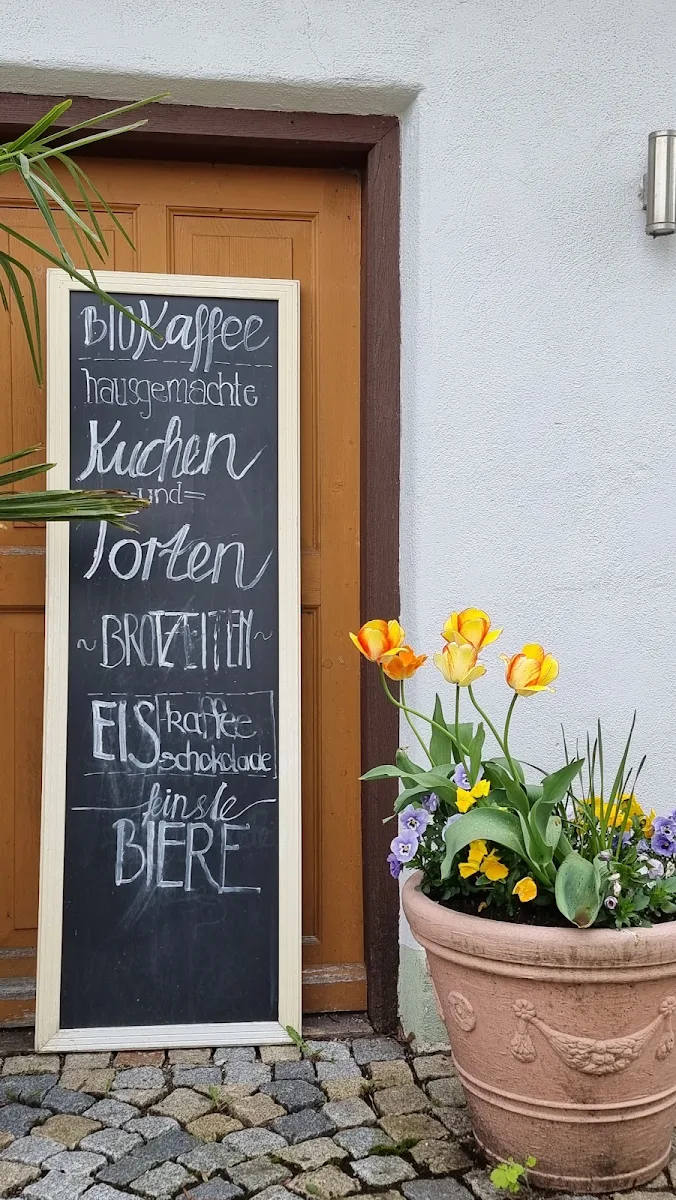 BIO Kaffee
hausgemachte
Kuchen
und
Torten
~ BROTZEITEN ~
EIS kaffee
schokolade
feinste
BIERE